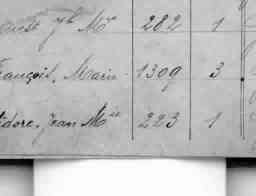 Jh Mie 282 1
François, Marie 1309 3
Isidore, Jean Mie 223 1